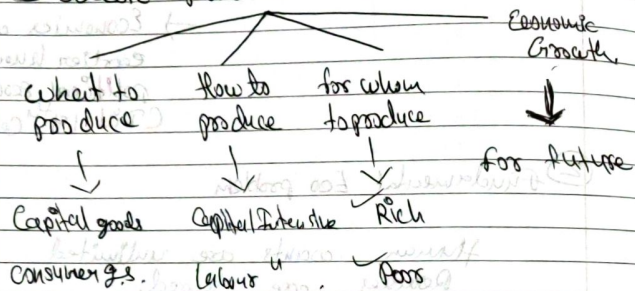 Economic
Growth
what to How to for whom
produce produce to produce
for future
Capital goods Capital Intensive Rich
consumer g.s. labour " . Poor